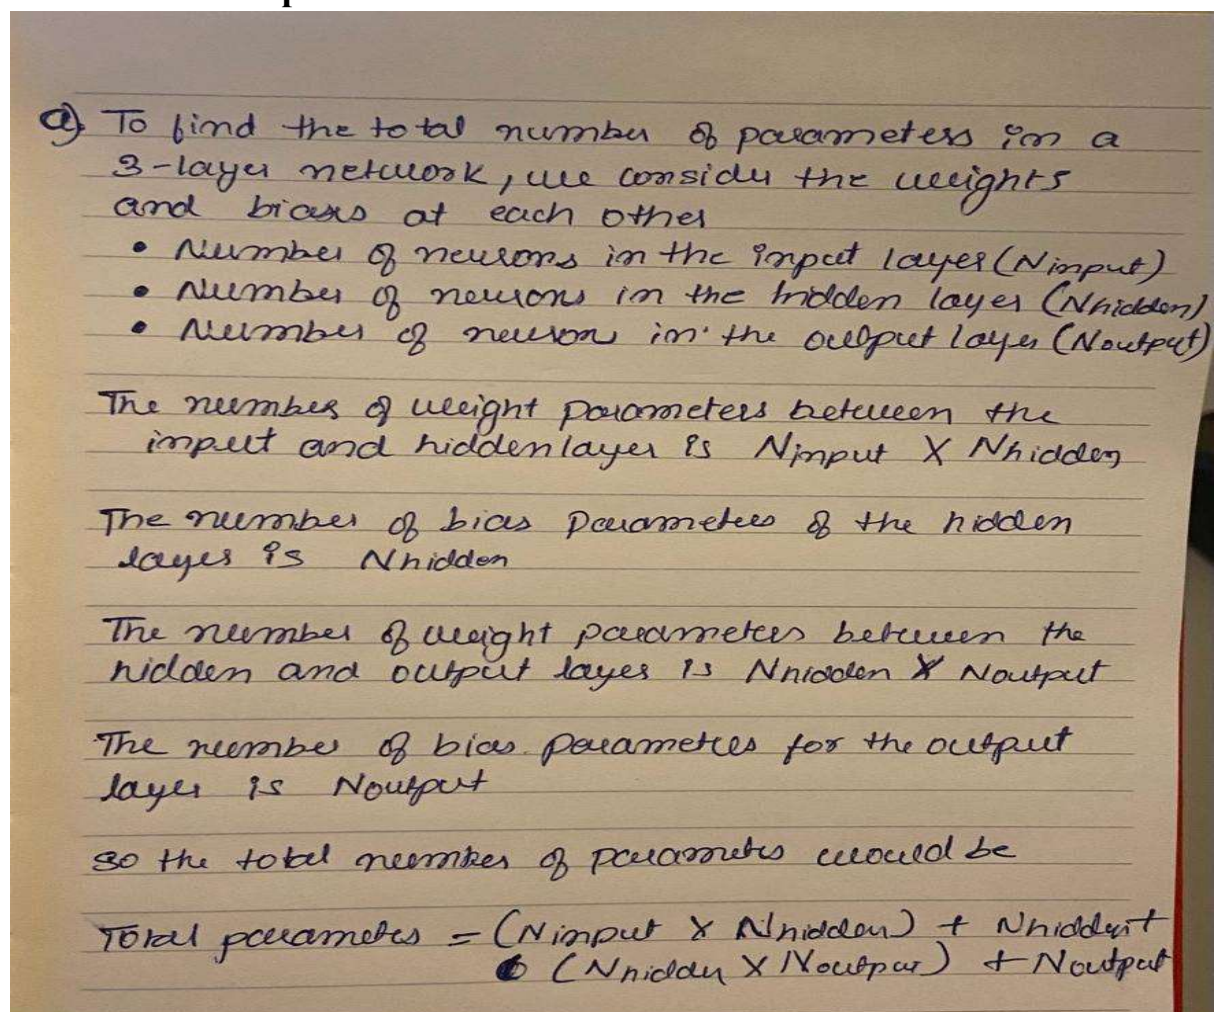 a) To find the total number of parameters in a
3-layer network, we consider the weights
and biases at each other
• Number of neurons in the input layer (Ninput)
• Number of neurons in the hidden layer (Nhidden)
• Number of neurons in the output layer (Noutput)
The number of weight parameters between the
input and hidden layer is Ninput X Nhidden
The number of bias parameters of the hidden
layer is Nhidden
The number of weight parameters between the
hidden and output layer is Nhidden X Noutput
The number of bias parameters for the output
layer is Noutput
so the total number of parameters would be
Total parameters = (Ninput X Nhidden) + Nhidden +
(Nhidden X Noutput) + Noutput